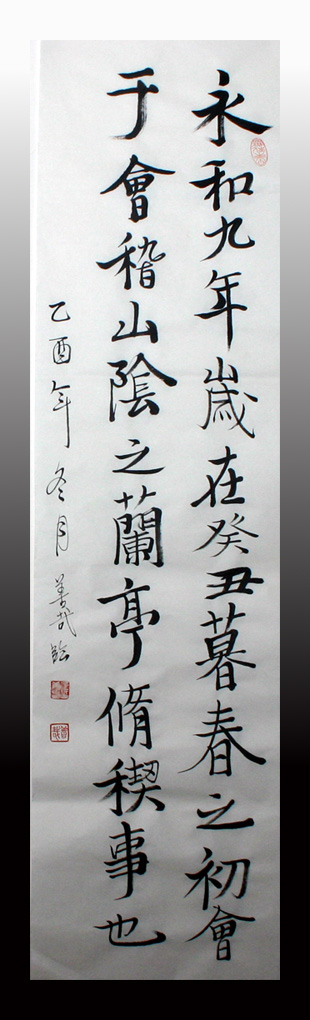 永和九年歲在癸丑暮春之初會
于會稽山陰之蘭亭脩稧事也
乙酉年冬月善哉